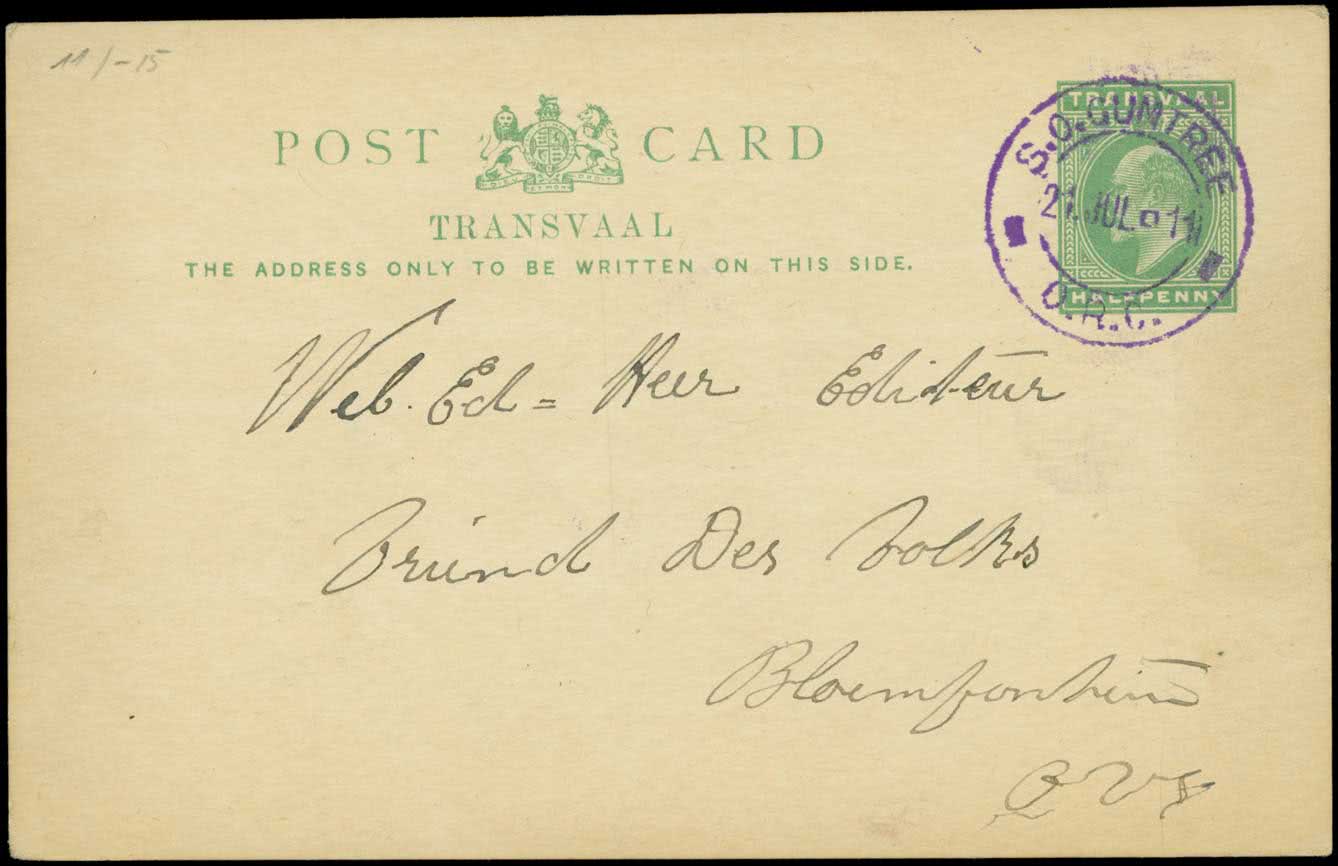 11/-15
POST CARD
DIEU ET MON DROIT
TRANSVAAL
THE ADDRESS ONLY TO BE WRITTEN ON THIS SIDE.
TRANSVAAL
HALFPENNY
S.O. GUMTREE
21 JUL 11
O.R.C.
Web. Ed= Heer Editeur
Vriend Des Volks
Bloemfontein
OVS